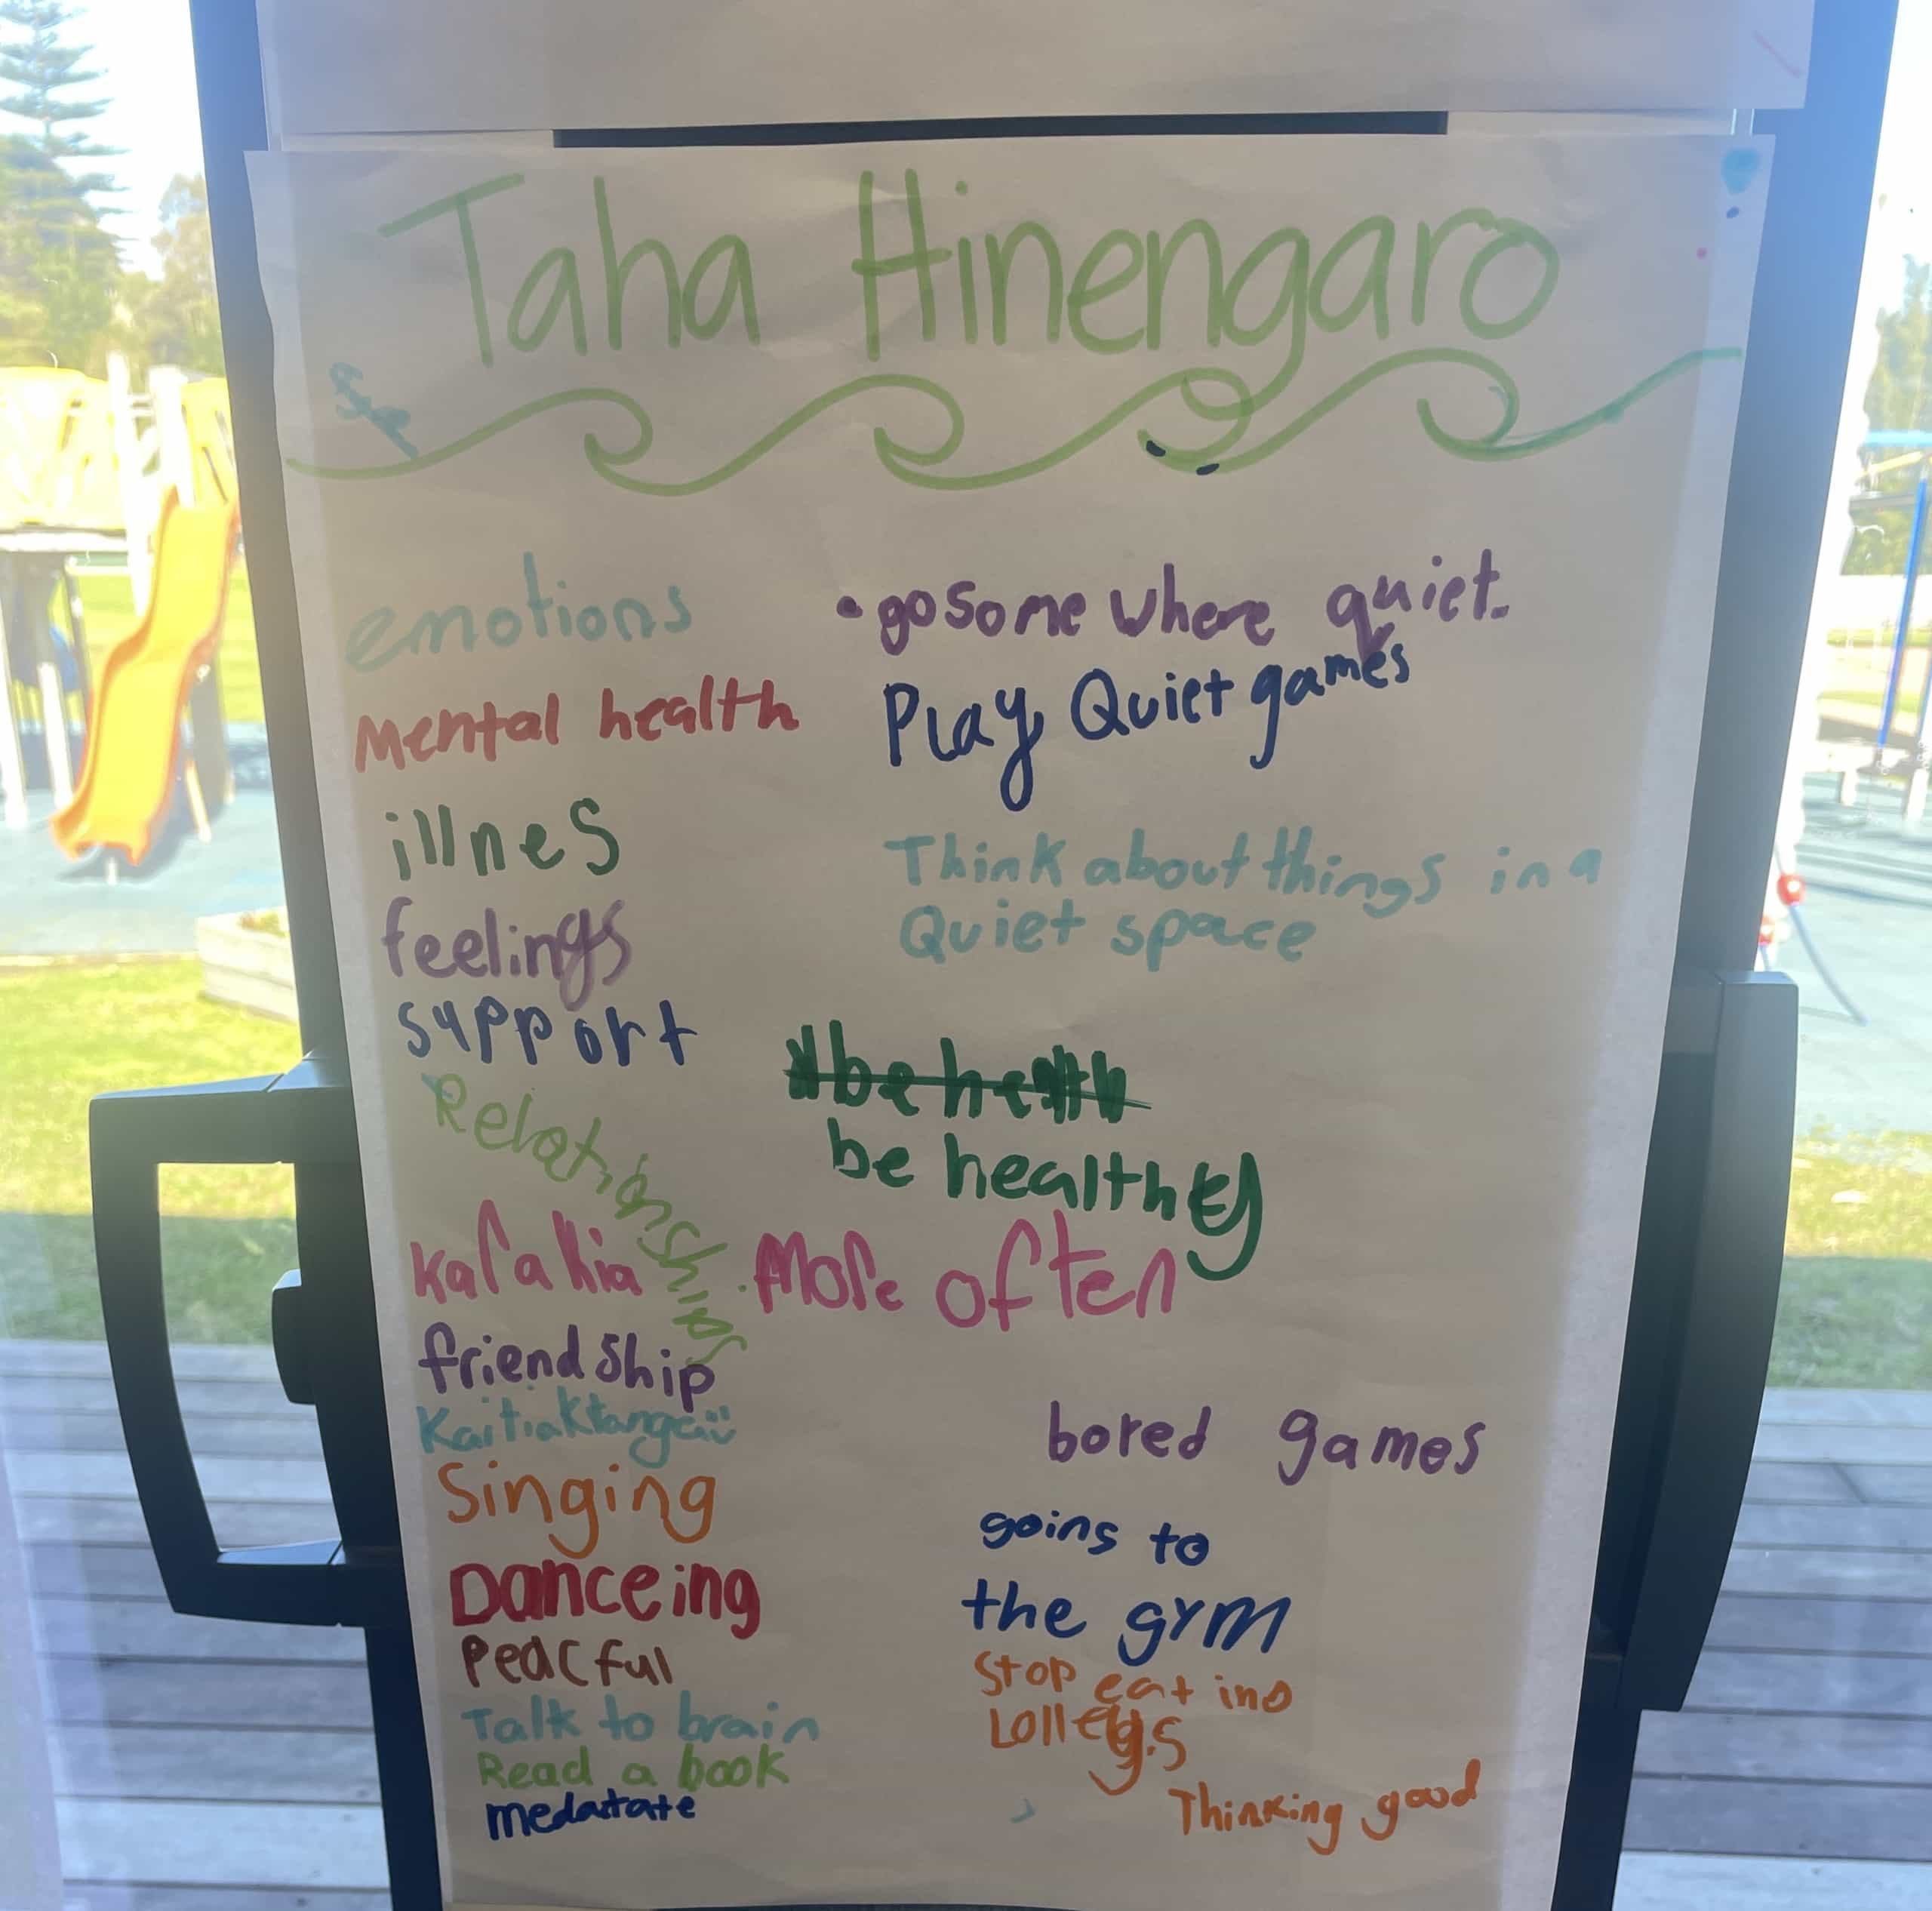 Taha Hinengaro
emotions
Mental health
illnes
feelings
support
Relationships
karakia more often
friendship
Singing
Danceing
Peacful
Talk to brain
Read a book
• go some where quiet.
Play Quiet games
Think about things in a
Quiet space
be healthy
bored games
going to
the gym
Stop eating
Thinking good